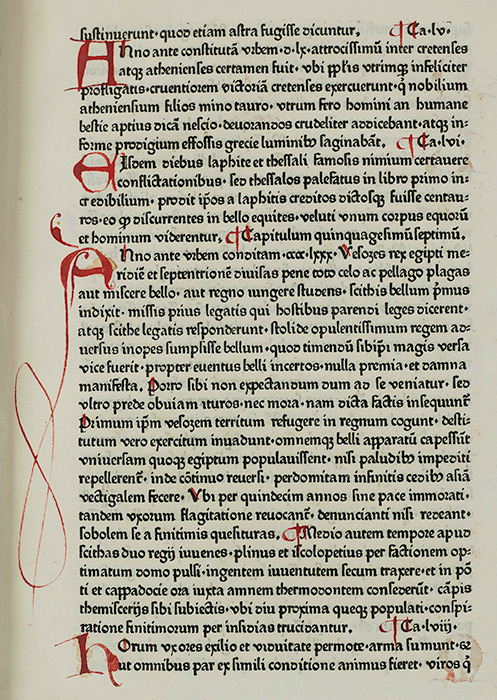 sustinuerunt· quod etiam astra fugisse dicuntur, Ca·lv·
Anno ante constitutā vrbem·d·lx·attrocissimū inter cretenses
atqꝫ athenienses certamen fuit· vbi ꝓꝑlis vtrimqꝫ infeliciter
profligatis· cruentiorem victoriā cretenses exercuerunt· qͥ nobilium
atheniensium filios mino tauro· vtrum fero homini an humane
bestie aptius dicā nescio· deuorandos crudeliter addicebant· atqꝫ in-
forme prodigium effossis grecie luminibꝰ saginabāt, Ca·lvi·
Eisdem diebus laphite et thessali famosis nimium certauere
conflictationibus· sed thessalos palefatus in libro primo in-
credibilium· prodit ip̄os a laphitis creditos dictosqꝫ fuisse centau-
ros· eo qꝫ discurrentes in bello equites· veluti vnum corpus equorū
et hominum viderentur, Capitulum quinquagesimūseptimū·
Anno ante vrbem conditam·cccc·lxxx· Vesozes rex egipti me-
ridiē et septentrionē diuisas pene toto celo ac pellago plagas
aut miscere bello· aut regno iungere studens· scithis bellum pͥmus
indixit· missis prius legatis qui hostibus parendi leges dicerent·
atqꝫ scithe legatis responderunt· stolide opulentissimum regem ad-
uersus inopes sumpsisse bellum· quod timendū sibip̄i magis versa
vice fuerit· propter euentus belli incertos· nulla premia· et damna
manifesta· Porro sibi non expectandum dum ad se veniatur· sed
vltro prede obuiam ituros· nec mora· nam dicta factis insequunt᷑
Primum ip̄m vesozem territum refugere in regnum cogunt· desti-
tutum vero exercitum inuadunt· omnemqꝫ belli apparatū capessūt
vniuersam quoqꝫ egiptum populauissent· nisi paludibꝰ impediti
repellerent᷑· inde cōtinuo reuersi· perdomitam infinitis cedibꝰ asiā
vectigalem fecere· Vbi per quindecim annos sine pace immorati·
tandem vxorum flagitatione reuocant᷑· denuncianti nisi redeant·
sobolem se a finitimis quesituras· Medio autem tempore apud
scithas duo regij iuuenes· plinus et iscolopetius per factionem op-
timatum domo pulsi· ingentem iuuentutem secum traxere· et in pō
ti et cappadocie ora iuxta amnem thermodontem consederūt· cāpis
themiscerijs sibi subiectis· vbi diu proxima queqꝫ populati· conspi-
ratione finitimorum per insidias trucidantur, Ca·lviij·
Horum vxores exilio et viduitate permote· arma sumunt· ⁊
ut omnibus par ex simili conditione animus fieret· viros qͥ